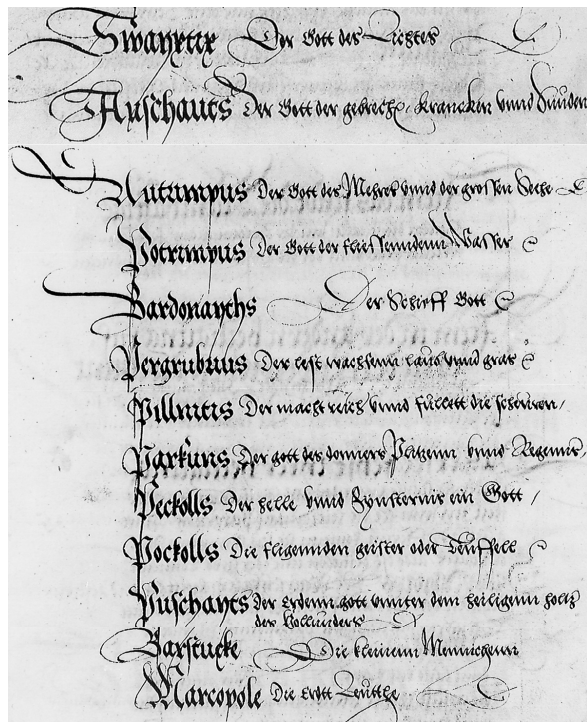 Swayxtix Der Gott des Lichtes
Auschauts Der Gott der gebrechen Krancken vnnd Sunden
Autrimpus Der Gott des Mehres vnnd der grossen Sehe
Potrimpus Der Gott der fliessenndenn Wasser
Bardonayths Der Schieff Gott
Pergrubrius Der lest wachsenn laub vnnd gras
Pillnitis Der macht reich vnnd fullett die scheuren,
Parkuns Der gott des donners Plitzenn vnnd Regenns,
Peckolls Der helle vnnd Fynsternis ein Gott /
Pockolls Die fligennden geister oder Teuffell
Puschayts Der erdenn gott vnnter dem heiligenn holtz
des Hollunders
Barstucke Die kleinenn Mennichenn
Marcopole Die Leutthe